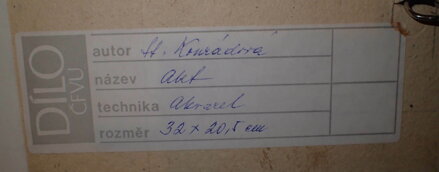 DÍLO
ČFVU
autor St. Konrádová
název Akt
technika Akvarel
rozměr 32 x 20,5 cm